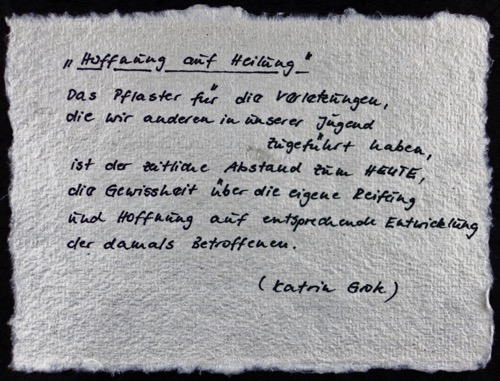 „Hoffnung auf Heilung"
Das Pflaster für die Verletzungen,
die wir anderen in unserer Jugend
zugeführt haben,
ist der zeitliche Abstand zum HEUTE,
die Gewissheit über die eigene Reifung
und Hoffnung auf entsprechende Entwicklung
der damals Betroffenen.
(Katrin Grote)